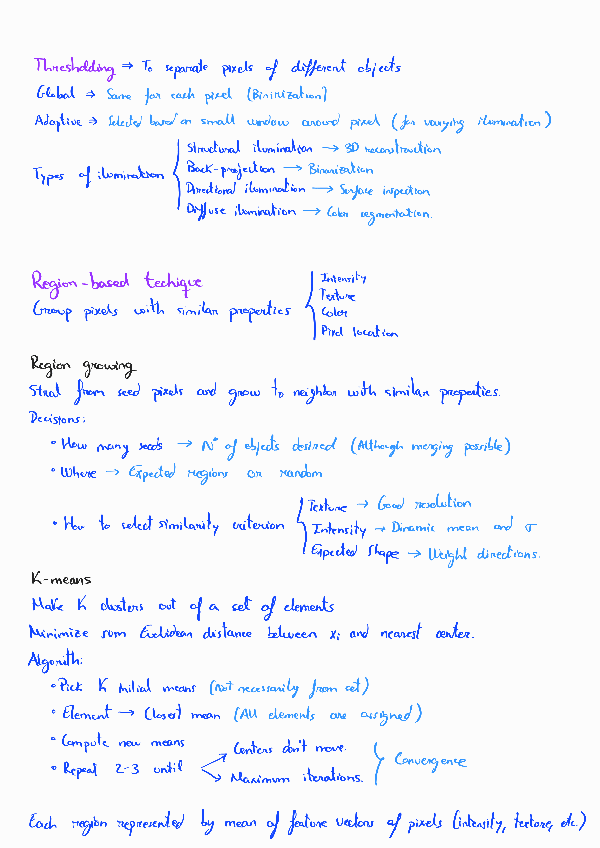 Thresholding ⇒ To separate pixels of different objects
Global ⇒ Same for each pixel (Binirization)
Adaptive ⇒ Selected based on small window around pixel (for varying ilumination)
Types of ilumination
Structural ilumination → 3D reconstruction
Back-projection → Binarization
Directional ilumination → Surface inspection
Diffuse ilumination → Color segmentation.
Region-based techique
Group pixels with similar properties
Intensity
Texture
Color
Pixel location
Region growing
Strat from seed pixels and grow to neighbor with similar properties.
Decisions:
• How many seeds → Nº of objects desired (Although merging possible)
• Where → Expected regions or random
• How to select similarity criterion
Texture → Good resolution
Intensity → Dinamic mean and σ
Expected Shape → Weight directions.
K-means
Make K clusters out of a set of elements
Minimize sum Euclidean distance between xi and nearest center.
Algorith:
• Pick K initial means (Not necessarily from set)
• Element → Closest mean (All elements are assigned)
• Compute new means
• Repeat 2-3 until
Centers don't move.
Maximum iterations.
Convergence
Each region represented by mean of feature vectors of pixels (intensity, texture, etc.)